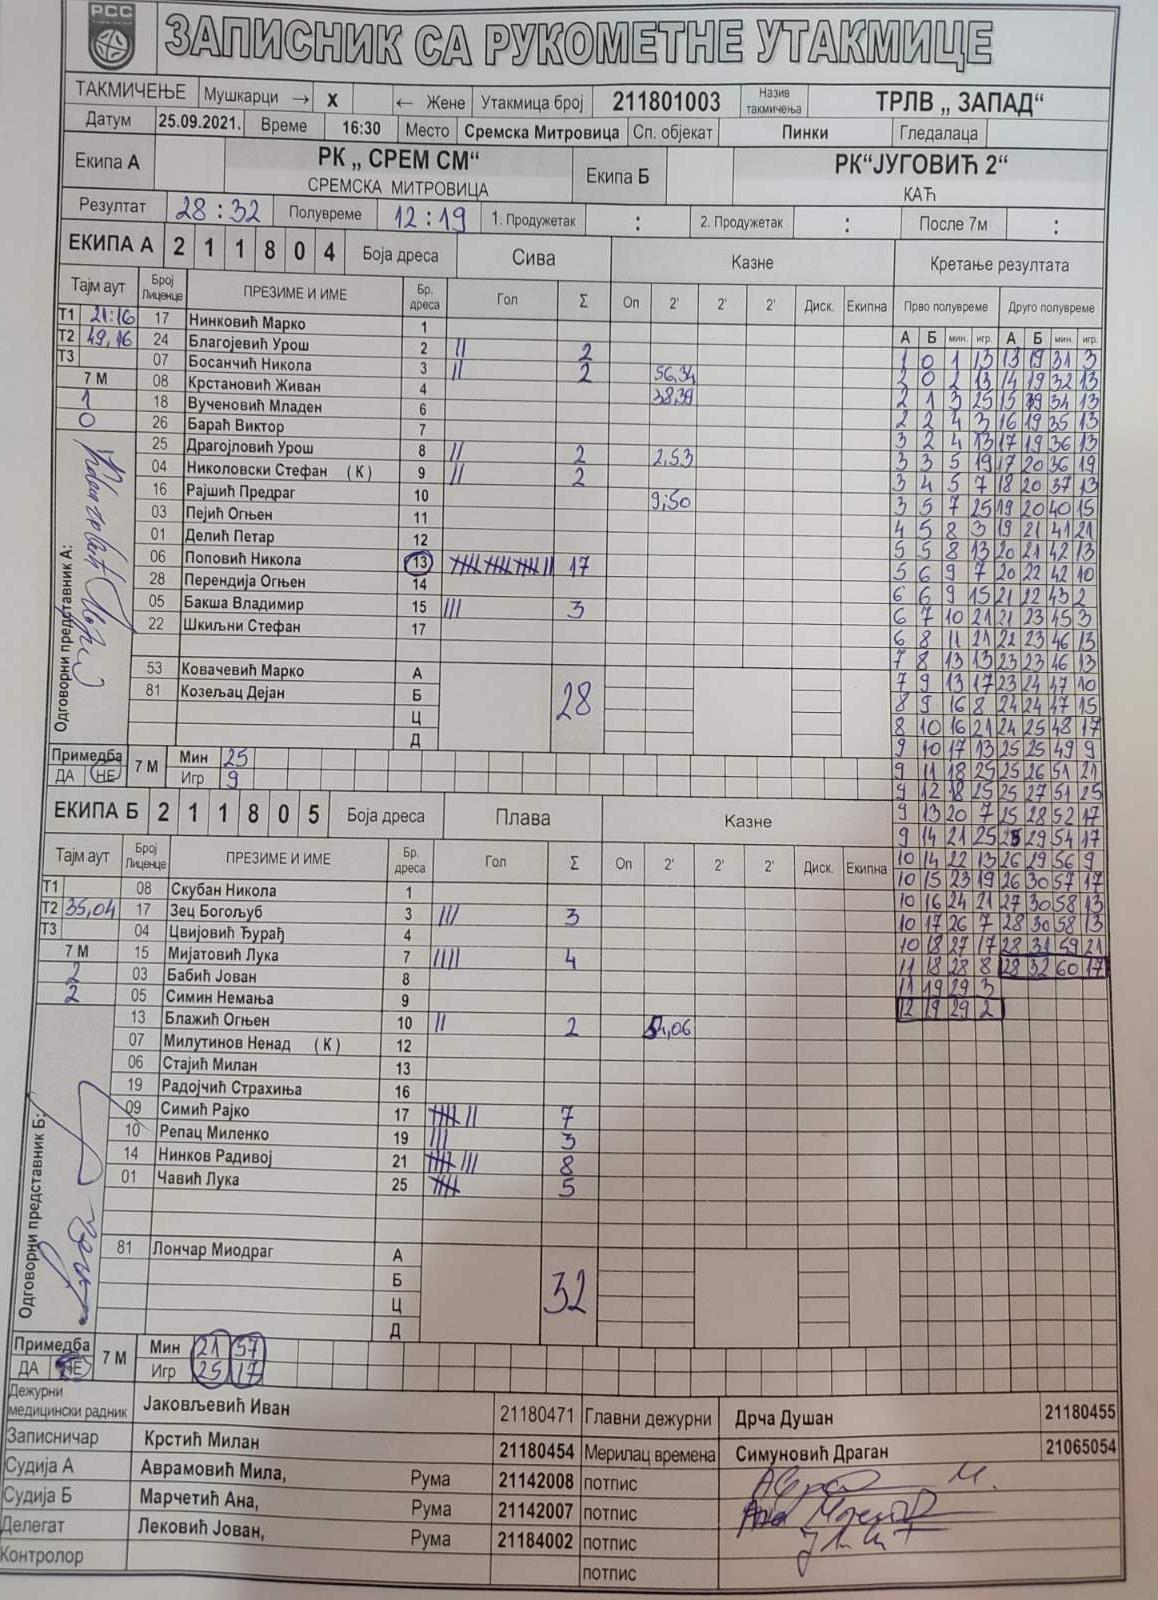 РСС
ЗАПИСНИК СА РУКОМЕТНЕ УТАКМИЦЕ
ТАКМИЧЕЊЕ Мушкарци → X ← Жене Утакмица број 211801003 Назив такмичења ТРЛВ „ ЗАПАД“
Датум 25.09.2021. Време 16:30 Место Сремска Митровица Сп. објекат Пинки Гледалаца
Екипа А РК „ СРЕМ СМ“ СРЕМСКА МИТРОВИЦА Екипа Б РК“ЈУГОВИЋ 2“ КАЋ
Резултат 28:32 Полувреме 12:19 1. Продужетак : 2. Продужетак : После 7м :
ЕКИПА А 2 1 1 8 0 4 Боја дреса Сива Казне Кретање резултата
Тајм аут Број Лиценце ПРЕЗИМЕ И ИМЕ Бр. дреса Гол Σ Оп 2' 2' 2' Диск. Екипна Прво полувреме Друго полувреме
А Б мин. игр. А Б мин. игр.
Т1 21:16 17 Нинковић Марко 1
Т2 49,16 24 Благојевић Урош 2 || 2
Т3 07 Босанчић Никола 3 || 2 56,34
7 М 08 Крстановић Живан 4 38,39
1 18 Вученовић Младен 6
0 26 Бараћ Виктор 7
25 Драгојловић Урош 8 || 2 2,53
04 Николовски Стефан ( К ) 9 || 2
16 Рајшић Предраг 10 9,50
03 Пејић Огњен 11
01 Делић Петар 12
06 Поповић Никола 13 17
28 Перендија Огњен 14
05 Бакша Владимир 15 ||| 3
22 Шкиљни Стефан 17
53 Ковачевић Марко А
81 Козељац Дејан Б
Ц
Д
28
Одговорни представник А:
Примедба ДА НЕ 7 М Мин 25
Игр 9
1 0 1 13 13 19 31 3
2 0 2 13 14 19 32 13
2 1 3 25 15 19 34 13
2 2 4 3 16 19 35 13
3 2 4 13 17 19 36 13
3 3 5 19 17 20 36 19
3 4 5 7 18 20 37 13
3 5 7 25 19 20 40 15
4 5 8 3 19 21 41 21
5 5 8 13 20 21 42 13
5 6 9 7 20 22 42 10
6 6 9 15 21 22 43 2
6 7 10 21 21 23 45 3
6 8 11 21 22 23 46 13
7 8 13 13 23 23 46 13
7 9 13 17 23 24 47 10
8 9 16 8 24 24 47 15
8 10 16 21 24 25 48 17
9 10 17 13 25 25 49 9
9 11 18 25 25 26 51 21
9 12 18 25 25 27 51 25
9 13 20 7 25 28 52 17
9 14 21 25 25 29 54 17
10 14 22 13 26 29 56 9
10 15 23 19 26 30 57 17
10 16 24 21 27 30 58 13
10 17 26 7 28 30 58 13
10 18 27 17 28 31 59 21
11 18 28 8 28 32 60 17
11 19 29 3
12 19 29 2
ЕКИПА Б 2 1 1 8 0 5 Боја дреса Плава Казне
Тајм аут Број Лиценце ПРЕЗИМЕ И ИМЕ Бр. дреса Гол Σ Оп 2' 2' 2' Диск. Екипна
Т1 08 Скубан Никола 1
Т2 35,04 17 Зец Богољуб 3 ||| 3
Т3 04 Цвијовић Ђурађ 4
7 М 15 Мијатовић Лука 7 |||| 4
2 03 Бабић Јован 8
2 05 Симин Немања 9
13 Блажић Огњен 10 || 2
07 Милутинов Ненад ( К ) 12
06 Стајић Милан 13
19 Радојчић Страхиња 16
09 Симић Рајко 17 7
10 Репац Миленко 19 ||| 3
14 Нинков Радивој 21 8
01 Чавић Лука 25 5
81 Лончар Миодраг А
Б
Ц
Д
32
Одговорни представник Б:
Примедба ДА НЕ 7 М Мин 21 57
Игр 25 17
Дежурни медицински радник Јаковљевић Иван 21180471 Главни дежурни Дрча Душан 21180455
Записничар Крстић Милан 21180454 Мерилац времена Симуновић Драган 21065054
Судија А Аврамовић Мила, Рума 21142008 потпис
Судија Б Марчетић Ана, Рума 21142007 потпис
Делегат Лековић Јован, Рума 21184002 потпис
Контролор потпис